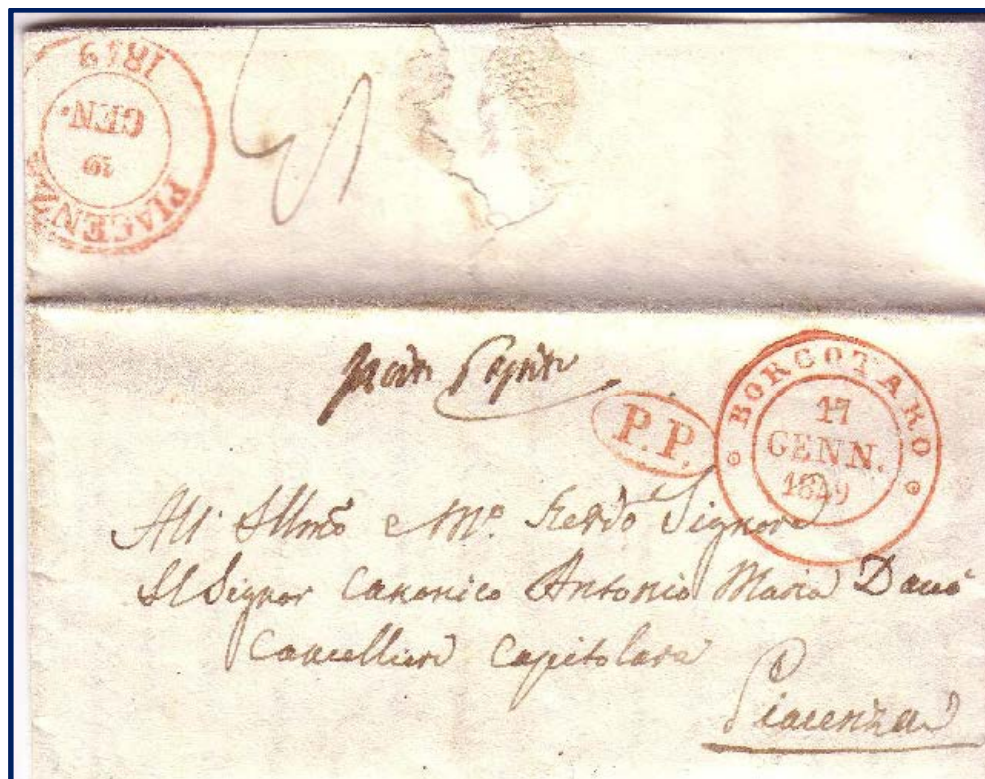 PIACENZA
19
GEN.
1849
P.P.
BORGOTARO
17
GENN.
1849
All' Illmo e Mo. Revdo Signore
Il Signor Canonico Antonio Maria
Cancelliere Capitolare
Piacenza